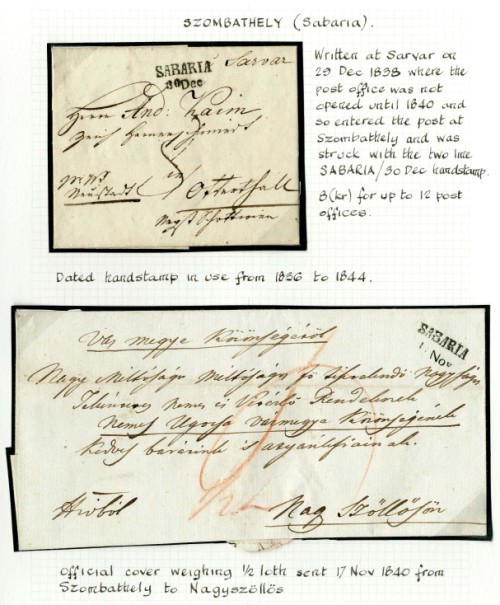 SZOMBATHELY (Sabaria).
SABARIA
30 Dec
Sarvar
Herrn And: Kaim
Neustadt
in
Otterthall
Written at Sarvar on
29 Dec 1838 where the
post office was not
opened until 1840 and
so entered the post at
Szombathely and was
struck with the two line
SABARIA/30 Dec handstamp.
8(kr) for up to 12 post
offices.
Dated handstamp in use from 1836 to 1844.
SABARIA
Nov
Vas megye Közönségéről
Nagy Méltóságu Méltóságos fő
Nemes és Rendeinek
Nemes Ugocsa Vármegye Közönségének
Kedves barátink s atyánkfiainak.
Hivból
Nagy Szöllősön
Official cover weighing 1/2 loth sent 17 Nov 1840 from
Szombathely to Nagyszöllös